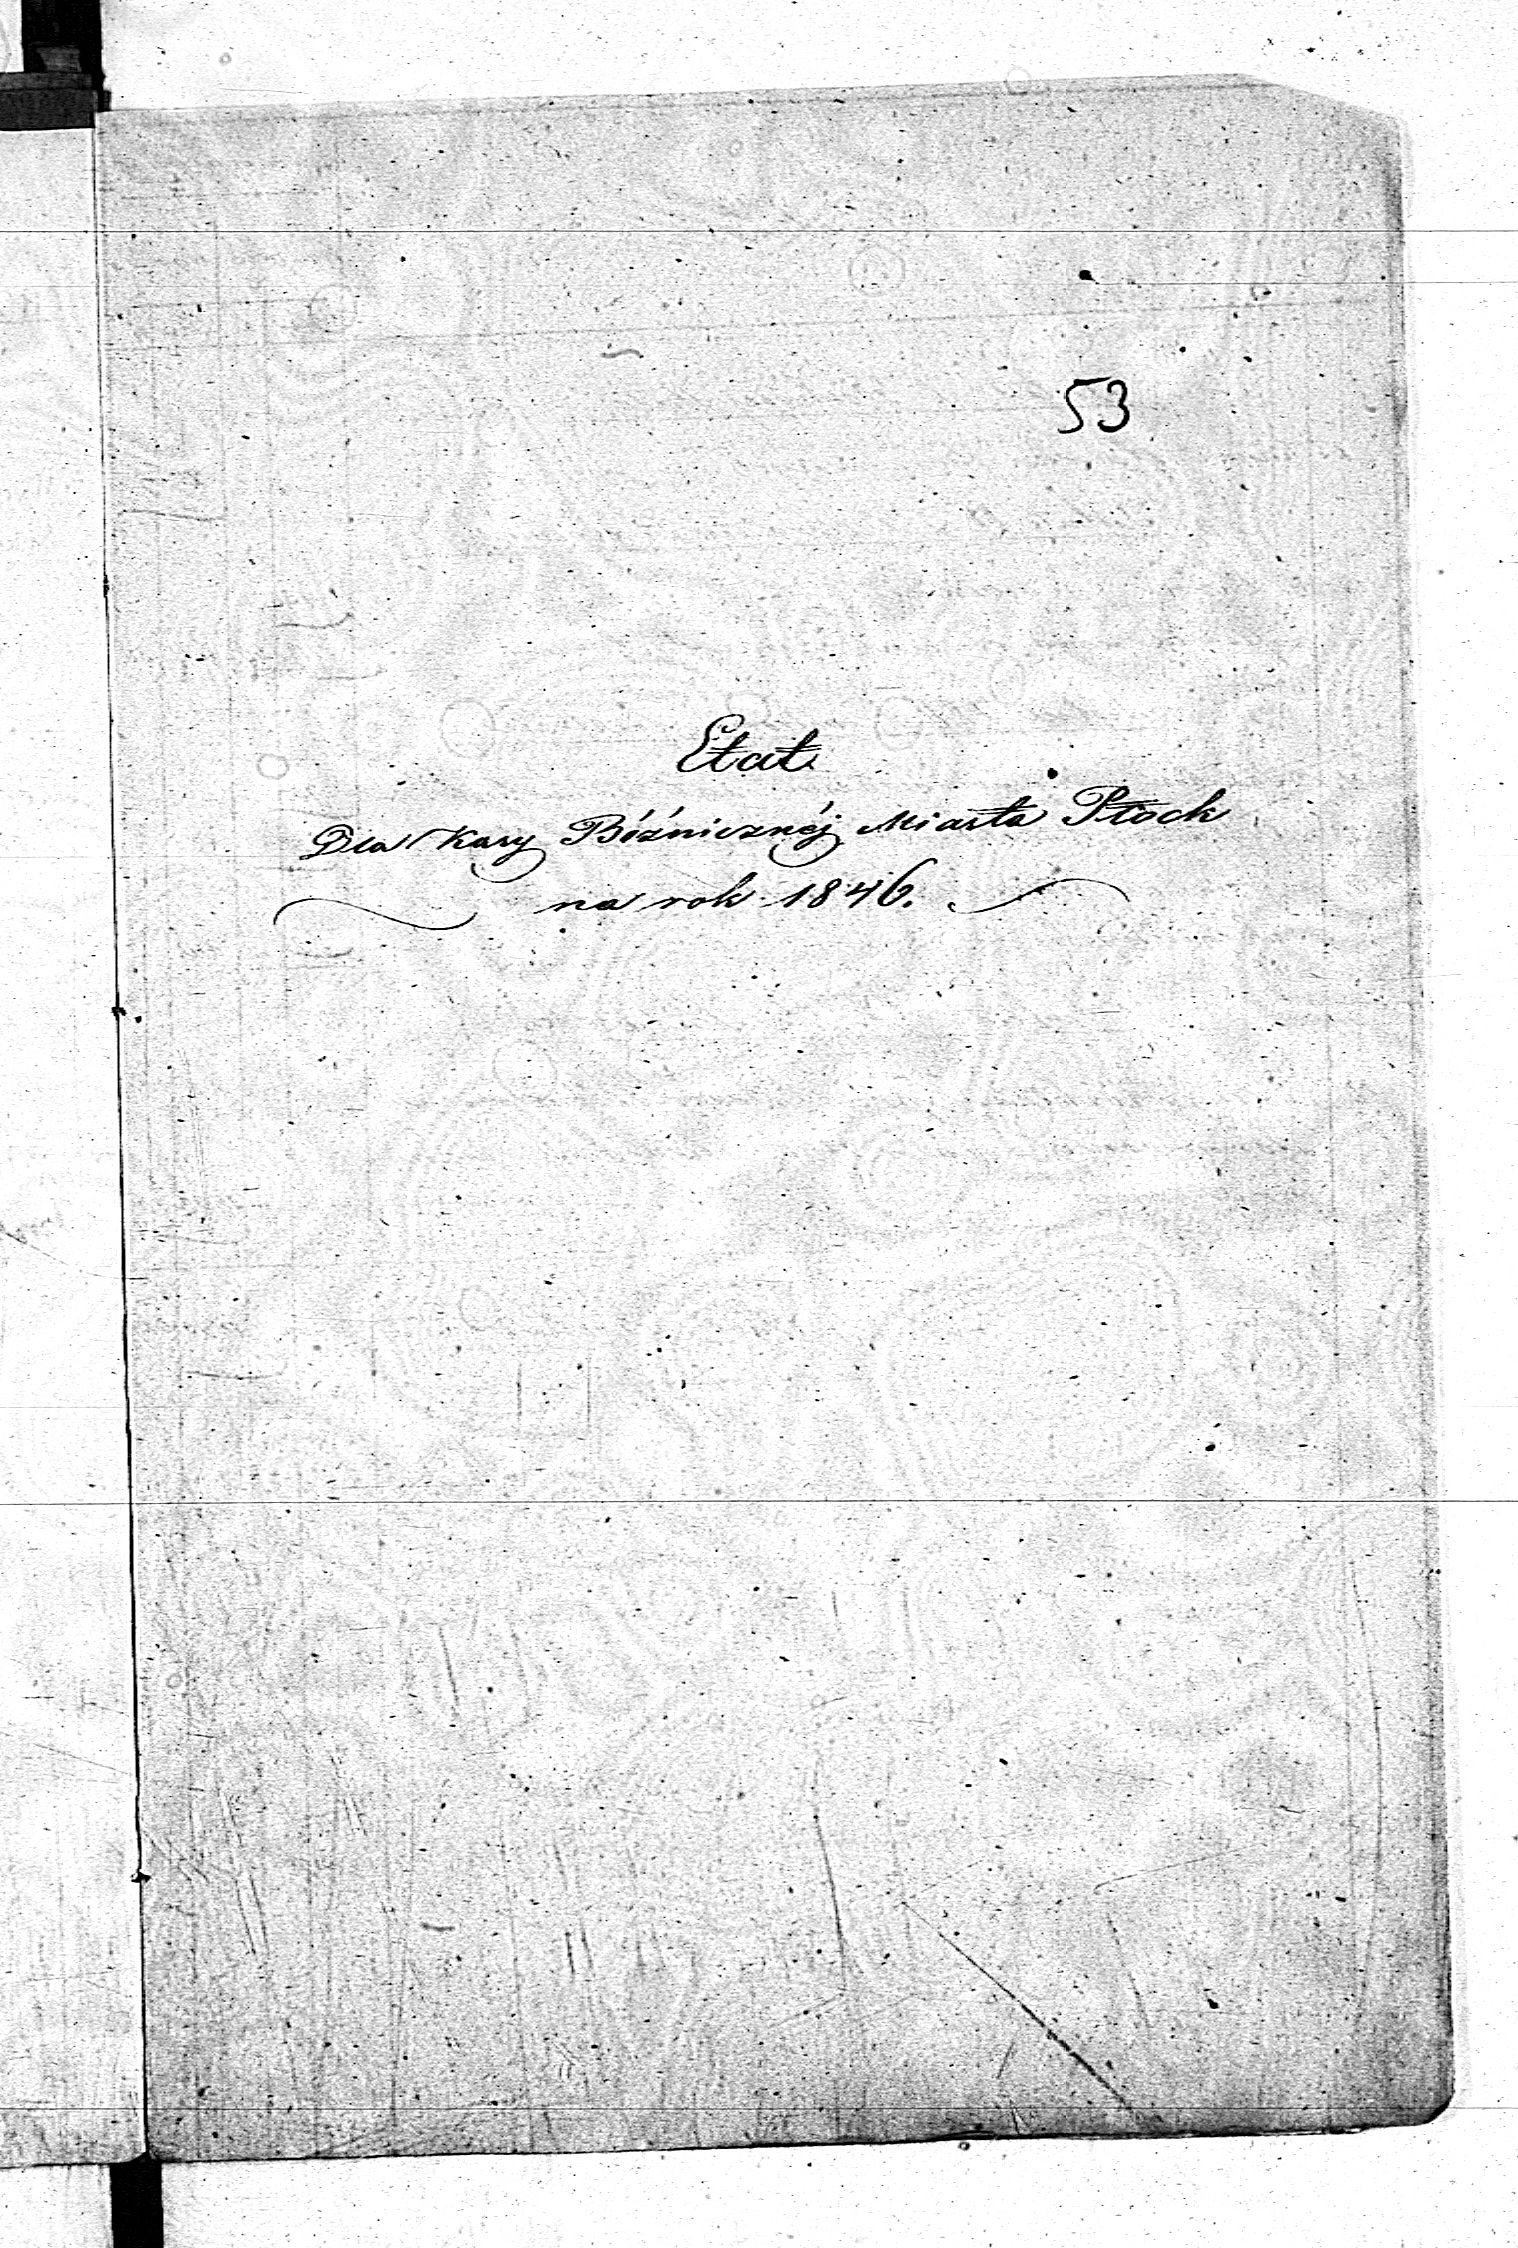 53
Etat
Dla Kasy Bóźnicznéj Miasta Płock
na rok 1846.